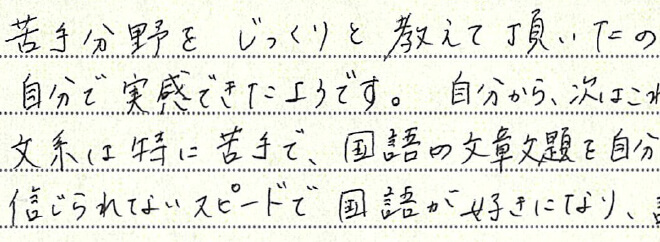 苦手分野を じっくりと 教えて頂いたの
自分で実感できたようです。 自分から、次はこれ
文系は特に苦手で、国語の文章文題を自分
信じられないスピードで国語が好きになり、